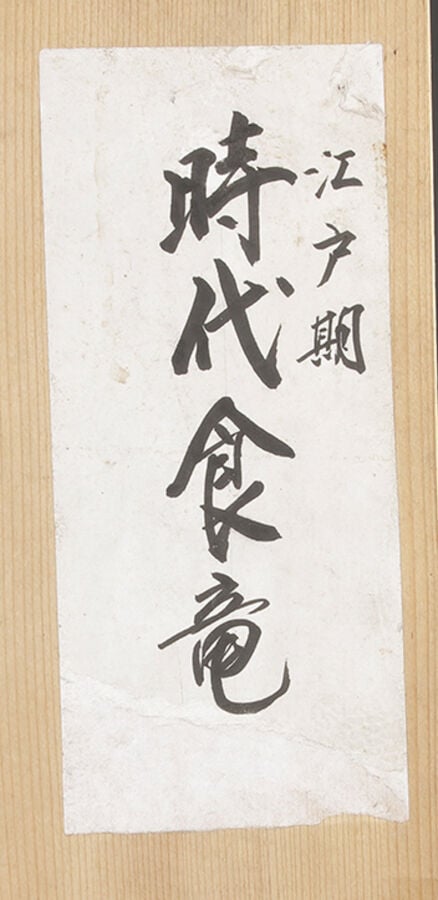 江戸期
時代食竜